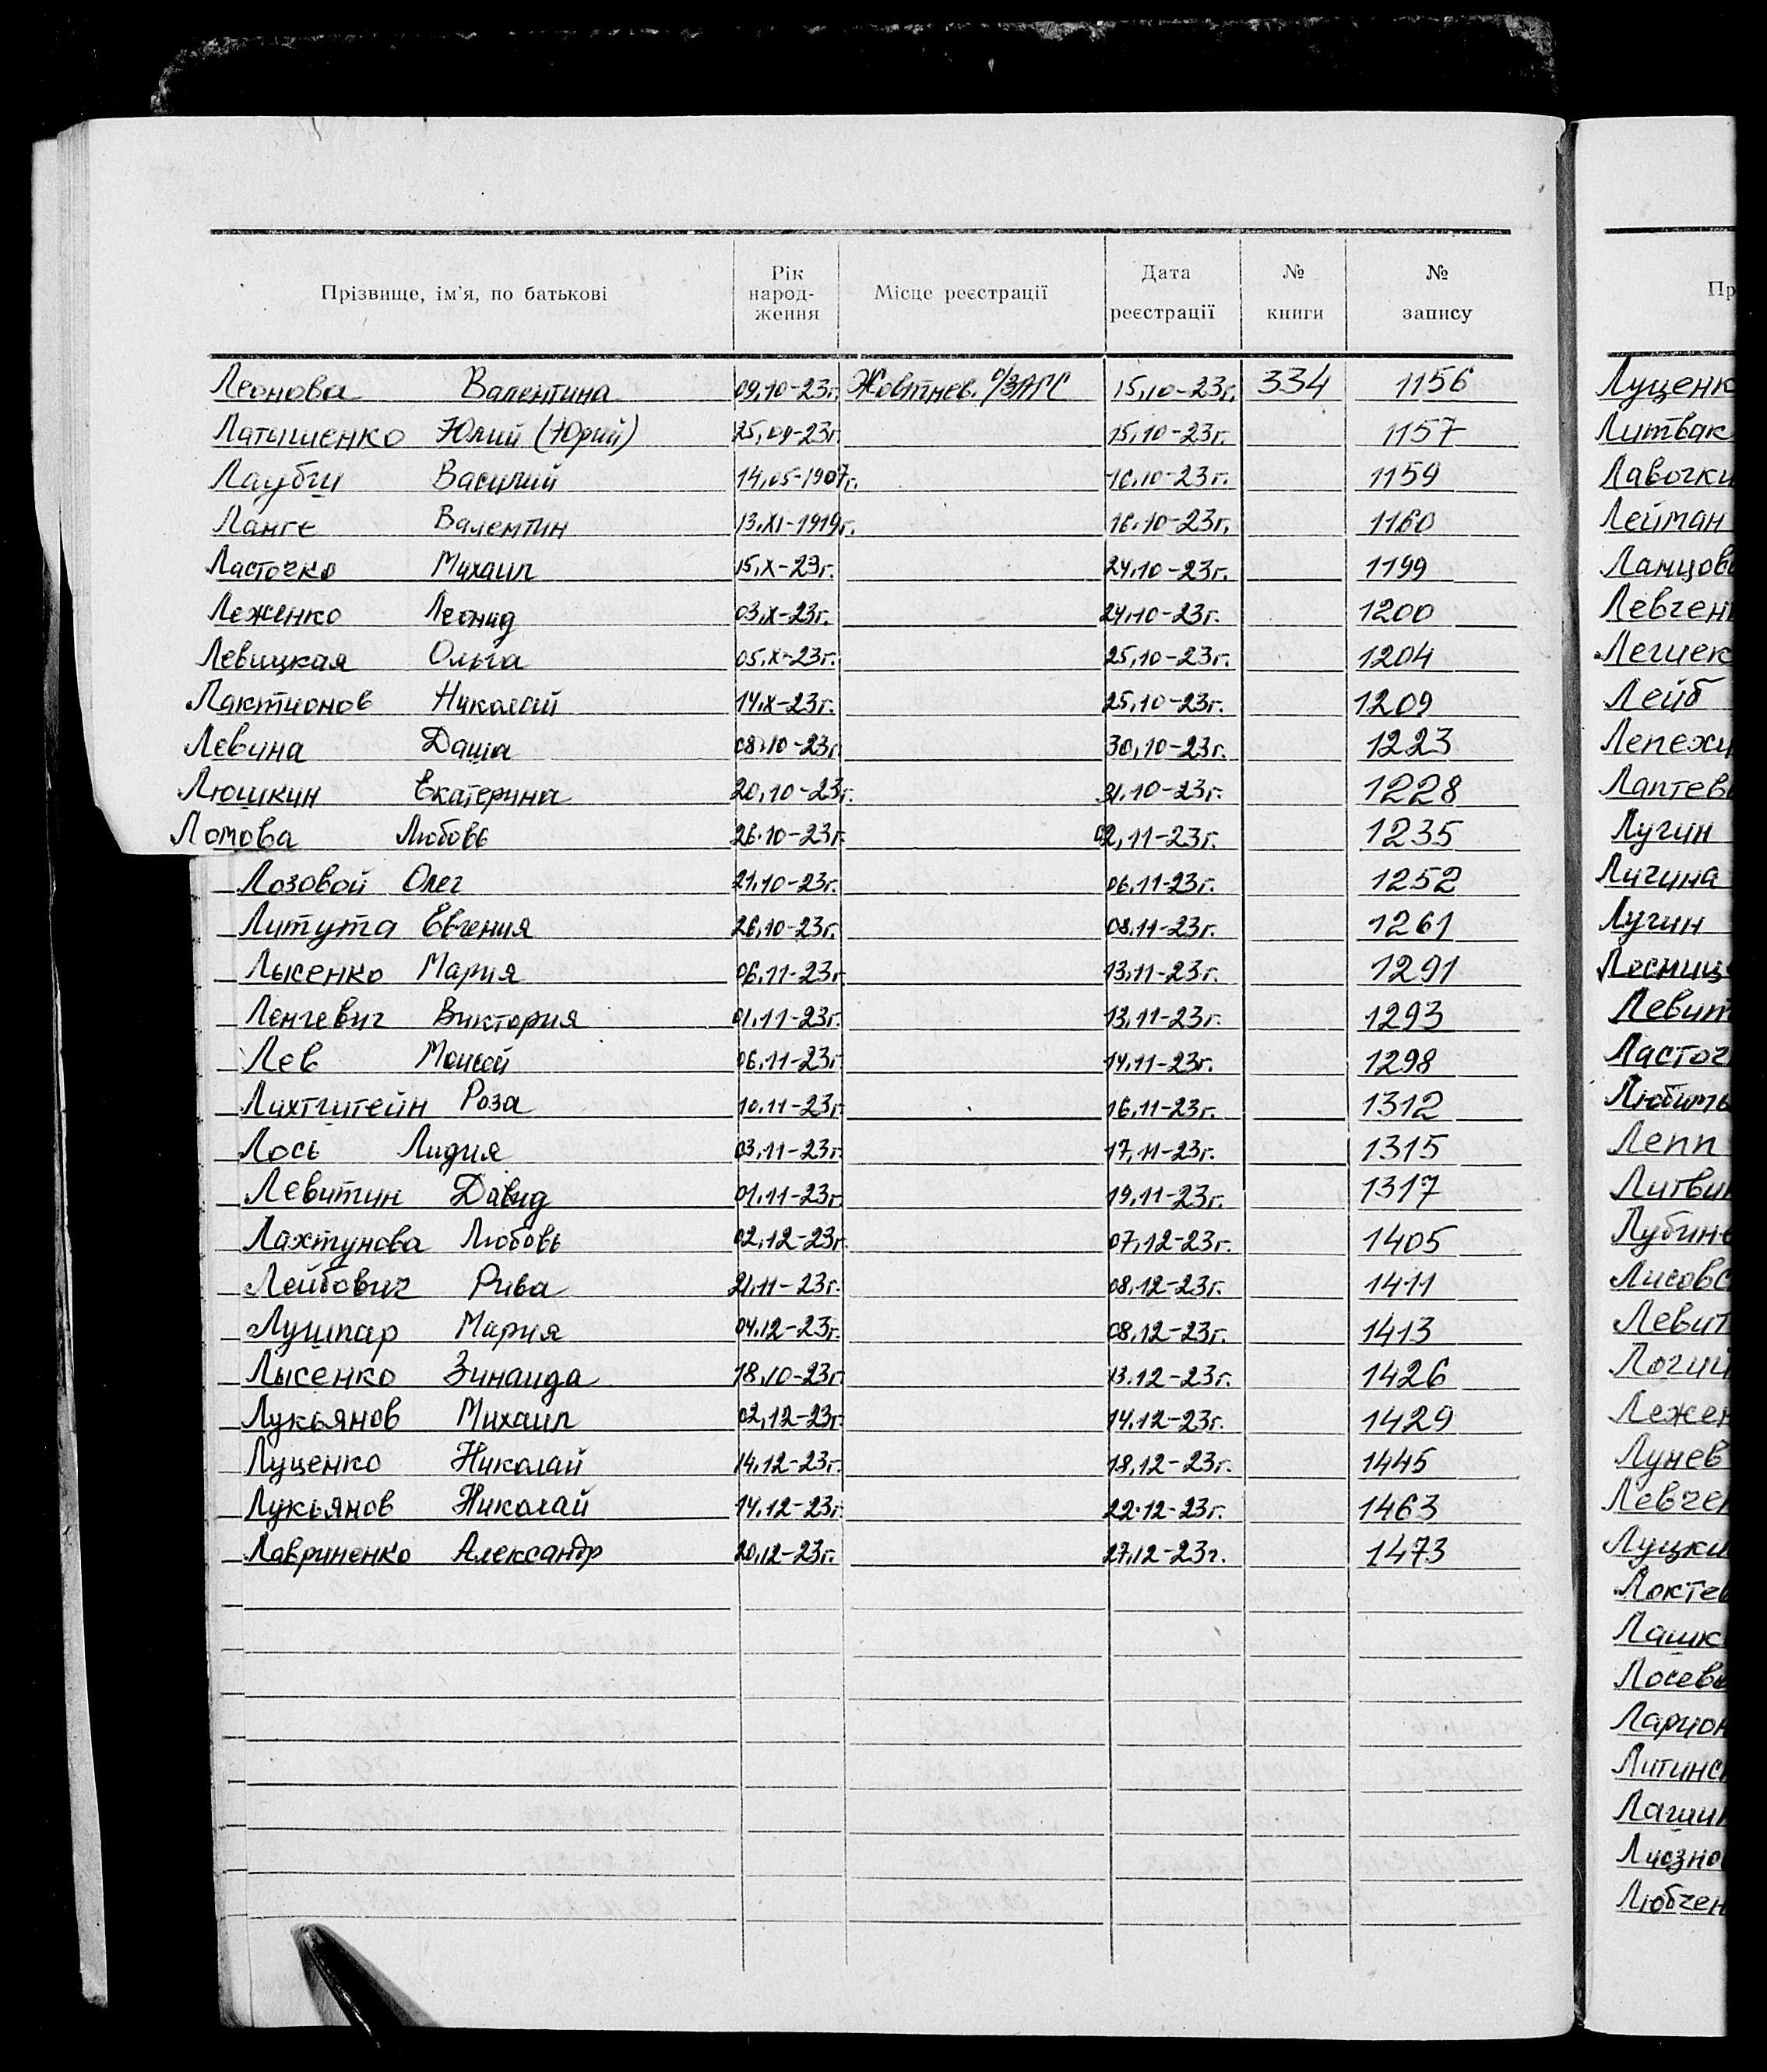 Прізвище, ім'я, по батькові Рік народ- ження Місце реєстрації Дата реєстрації № книги № запису
Леонова Валентина 09.10-23г. Жовтнев. о/ЗАГС 15.10-23г. 334 1156
Латышенко Юлий (Юрий) 25.09-23г 15.10-23г. 1157
Василий 14.05-1907г. 16.10-23г. 1159
Ланге Валентин 13.XI-1919г. 16.10-23г. 1160
Ласточко Михаил 15.X-23г. 24.10-23г. 1199
Леженко Леонид 03.X-23г. 24.10-23г. 1200
Левицкая Ольга 05.X-23г. 25.10-23г. 1204
Лактионов Николай 14.X-23г. 25.10-23г. 1209
Левина Даша 08.10-23г 30.10-23г. 1223
Люшкин Екатерина 20.10-23г. 31.10-23г. 1228
Ломова Любовь 26.10-23г. 02.11-23г. 1235
Лозовой Олег 21.10-23г. 06.11-23г. 1252
Литута Евгения 26.10-23г. 08.11-23г. 1261
Лысенко Мария 06.11-23г. 13.11-23г. 1291
Ленгевич Виктория 01.11-23г. 13.11-23г. 1293
Лев Моисей 06.11-23г 14.11-23г. 1298
Лихтштейн Роза 10.11-23г. 16.11-23г. 1312
Лось Лидия 03.11-23г. 17.11-23г. 1315
Левитин Давид 01.11-23г. 19.11-23г. 1317
Лахтунова Любовь 02.12-23г. 07.12-23г. 1405
Лейбович Рива 21.11-23г. 08.12-23г. 1411
Лушпар Мария 04.12-23г. 08.12-23г. 1413
Лысенко Зинаида 18.10-23г. 13.12-23г. 1426
Лукьянов Михаил 02.12-23г. 14.12-23г. 1429
Луценко Николай 14.12-23г. 18.12-23г. 1445
Лукьянов Николай 14.12-23г. 22.12-23г. 1463
Лавриненко Александр 20.12-23г. 27.12-23г. 1473
Пр
Луценк
Литвак
Лавочки
Лейман
Ланцов
Левчен
Лешек
Лейб
Лепехи
Лаптев
Лугин
Личина
Лугин
Лесниц
Левит
Ласточ
Любим
Лепп
Литви
Лубин
Лисовс
Левит
Логий
Лежен
Лунев
Левчен
Луцки
Локтев
Лашк
Лосев
Ларион
Литинс
Лашин
Лиозно
Любчен